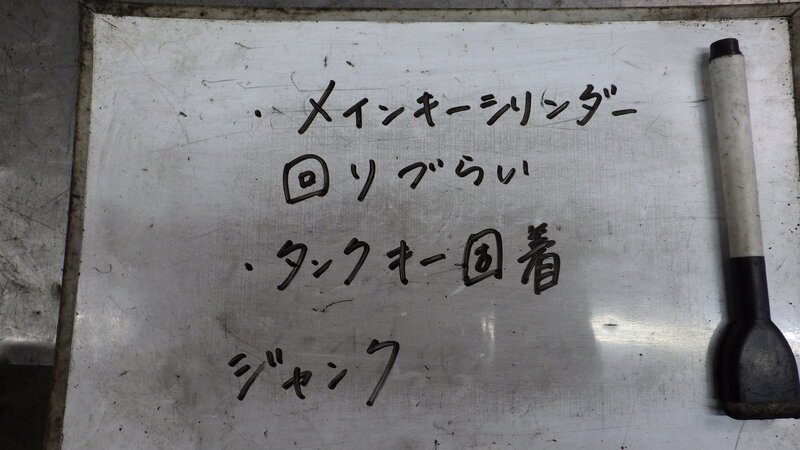 ・メインキーシリンダー
回りづらい
・タンクキー固着
ジャンク